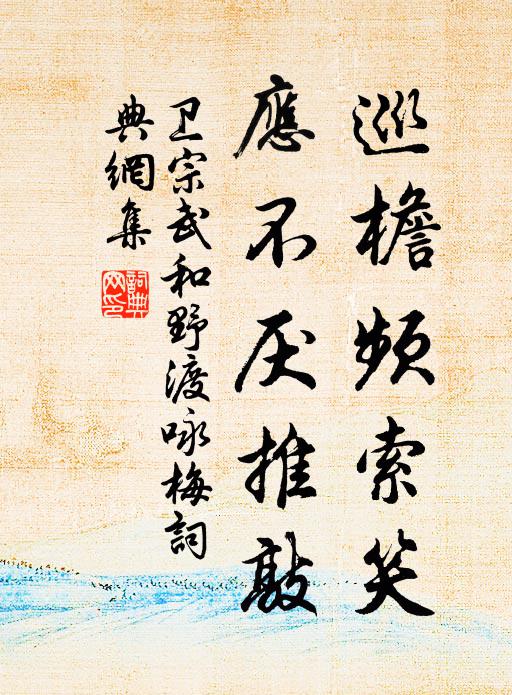 巡檐频索笑
應不厌推敲
卫宗武和野渡咏梅詞
典網集
詞典
网印